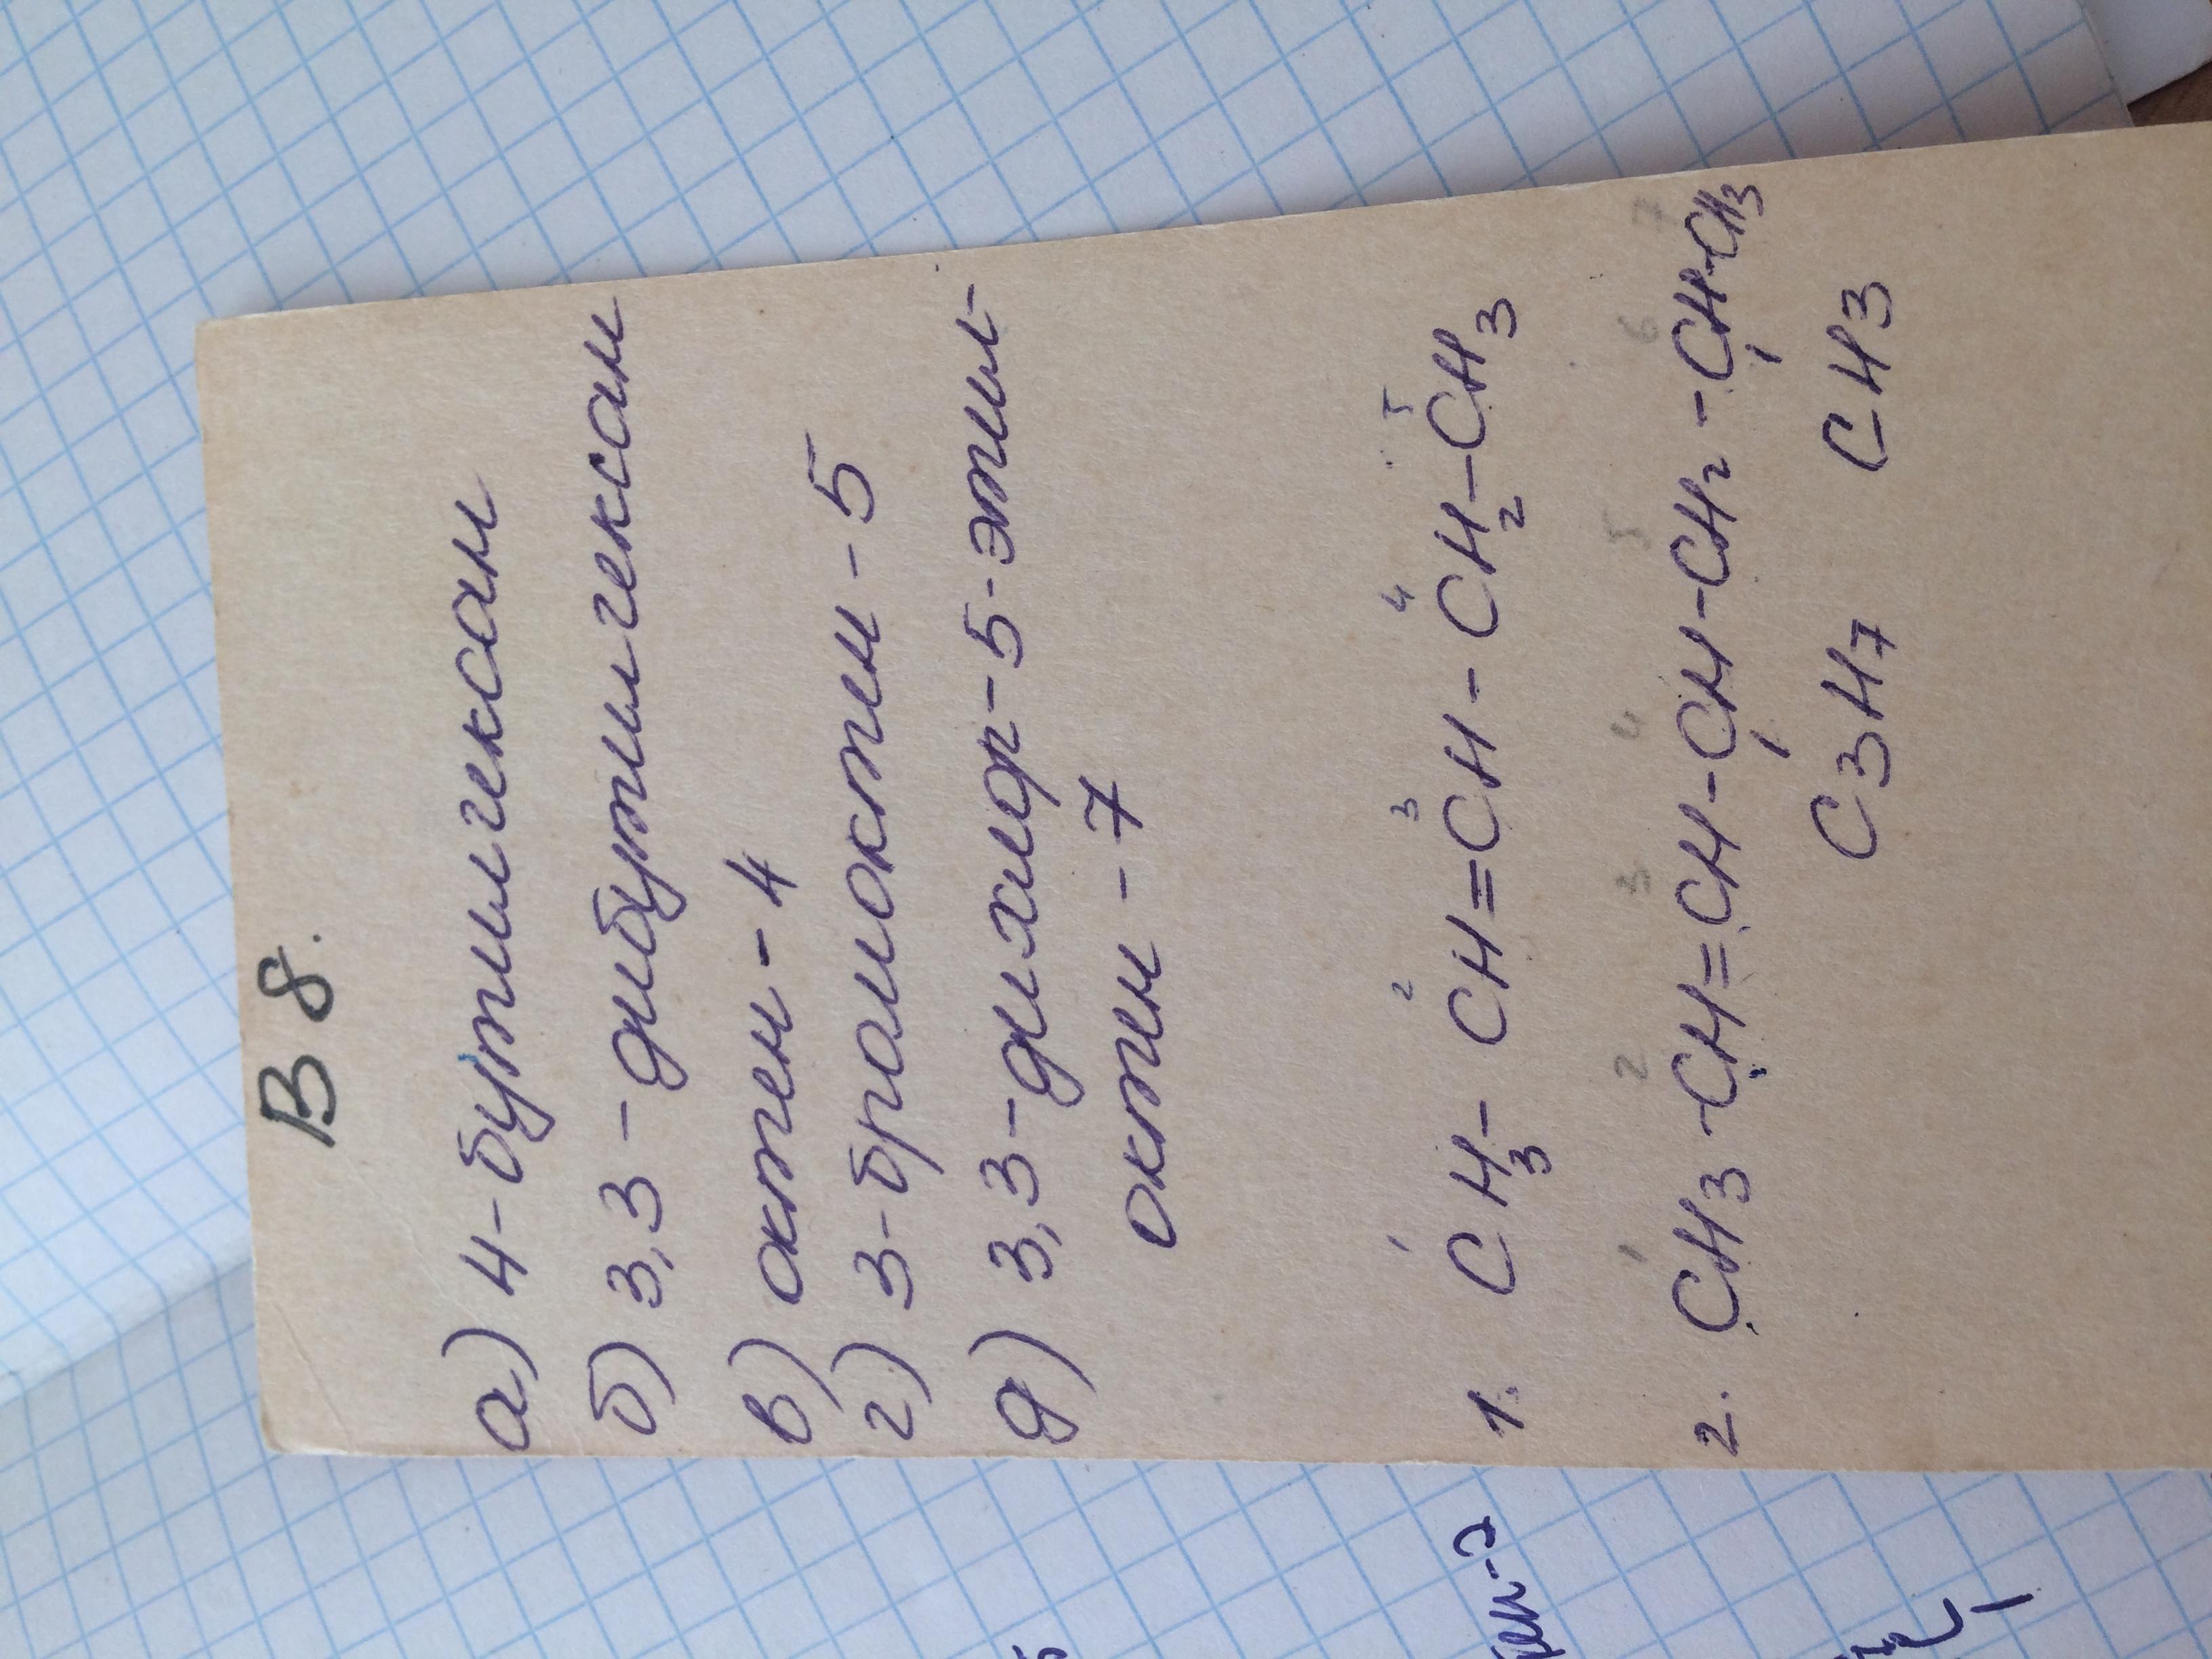 В 8.
а) 4-бутилгексан
б) 3,3-дибутилгексан
в) октен-4
г) 3-бромоктин-5
д) 3,3-дихлор-5-этил-
октин-7
1 2 3 4 5
1. CH3-CH=CH-CH2-CH3
1 2 3 4 5 6 7
2. CH3-CH=CH-CH-CH2-CH-CH3
C3H7 CH3